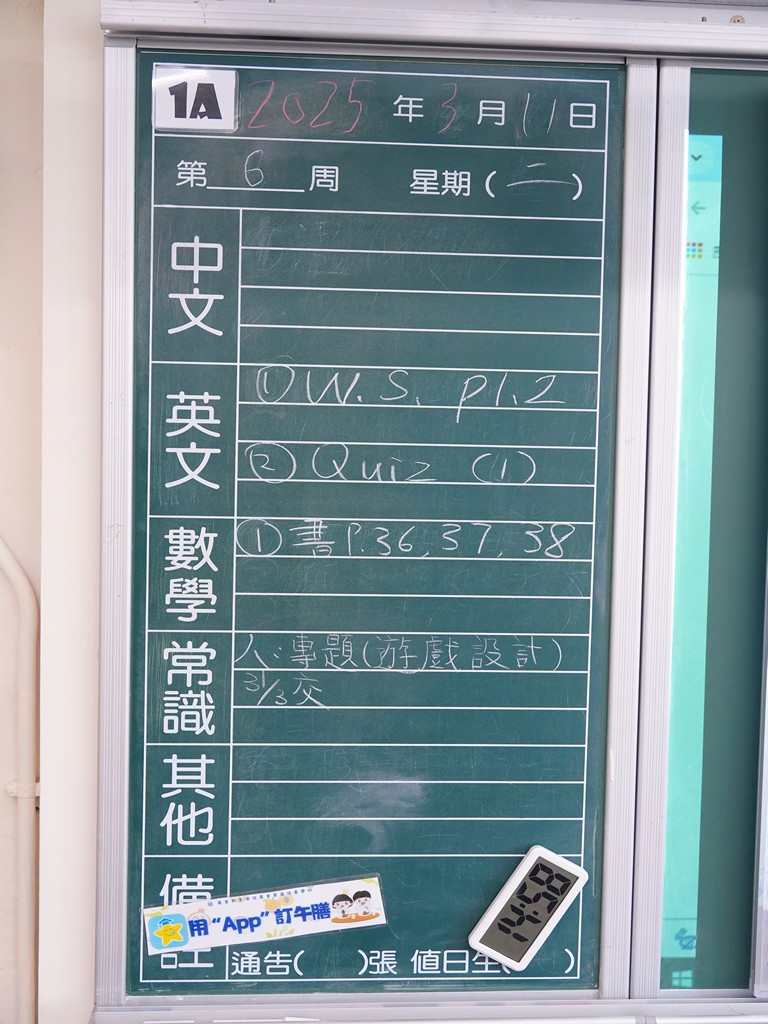 1A 2025年3月11日
第6周 星期(二)
中文
英文
①W.S. p1.2
②Quiz (1)
數學
①書P.36,37,38
常識
人:專題(遊戲設計)
31/3交
其他
備註
用“App”訂午膳
通告( )張 值日生( )